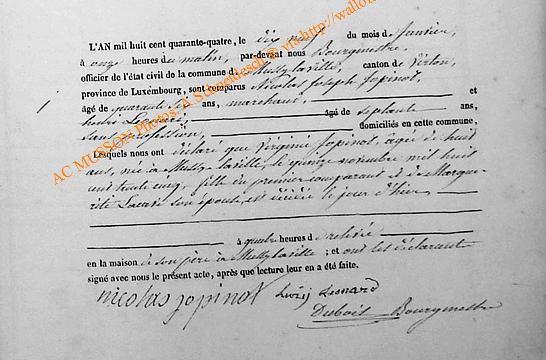 L'AN mil huit cent quarante-quatre, le dix neuf du mois de Janvier,
à onze heures du matin, par-devant nous Bourgmestre,
officier de l'état civil de la commune de Mussy la ville, canton de Virton,
province de Luxembourg, sont comparus Nicolas Joseph Jopinot,
âgé de quarante ans, marchand, et
âgé de septante ans,
sans profession, domiciliés en cette commune,
Lesquels nous ont déclaré que Virginie Jopinot, âgée de huit
ans, née à Mussy la ville, le quinze novembre mil huit
cent trente cinq, fille du premier comparant et de Margue-
rite son épouse, est décédée le jour d'hier
à quatre heures de relevée
en la maison de son père à Mussy la ville ; et ont les déclarants
signé avec nous le présent acte, après que lecture leur en a été faite.
nicolas jopinot Leonard
Dubois Bourgmestre
AC MUSSON Photos: A Schneidesch © via http://wallon